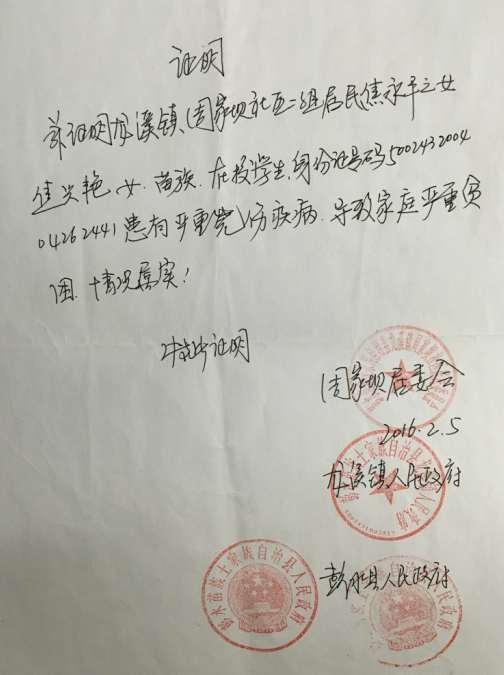 证明
兹证明龙溪镇、周家坝社区二组居民焦永平之女
焦兴艳 女、苗族、在校学生,身份证号码5002432004
04262441患有严重 疾病、导致家庭严重贫
困、情况属实!
特此证明
周家坝居委会
2016.2.5
龙溪镇人民政府
彭水县人民政府
彭水苗族土家族自治县人民政府